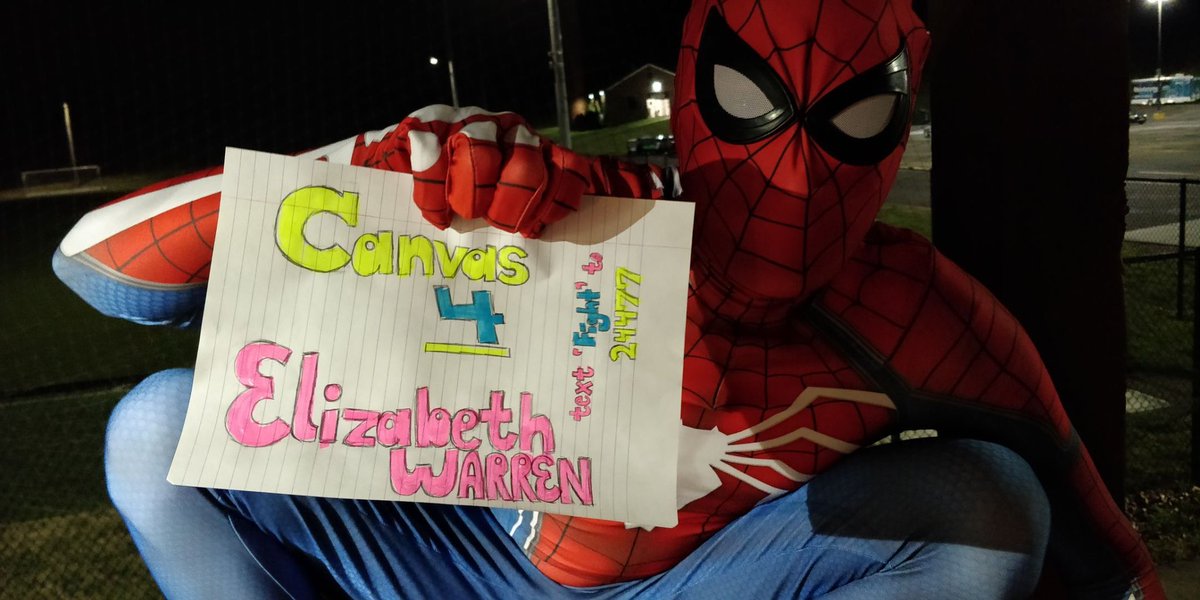 Canvas
4
Elizabeth
WARREN
text "Fight" to
24477